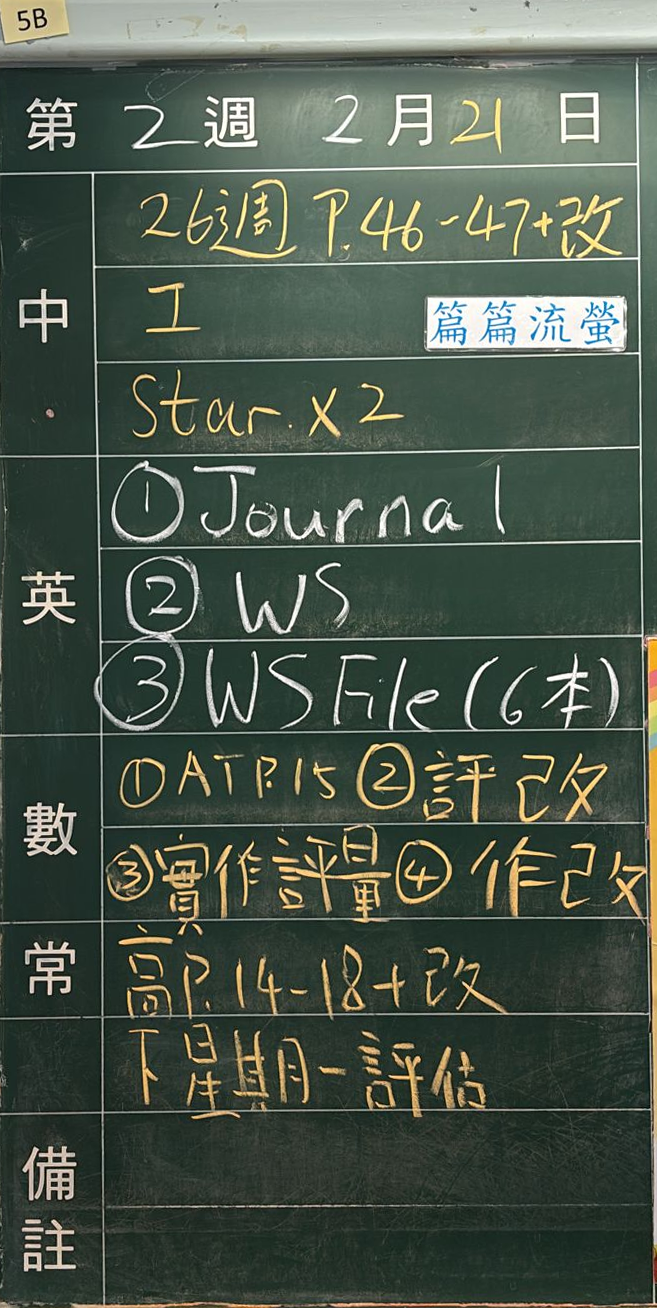 5B
第 2 週 2 月 21 日
中
26週 P.46-47+改
工
篇篇流螢
Star. x2
英
①Journal
② WS
③ WS File (6本)
數
①AT P.15 ②評改
③實作評量④作改
常
高P.14-18+改
下星期一評估
備註